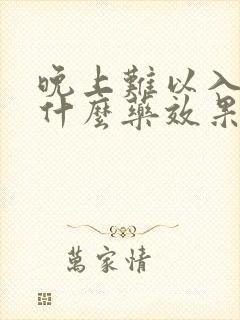 晚上難以入
什麼藥效果
萬家情